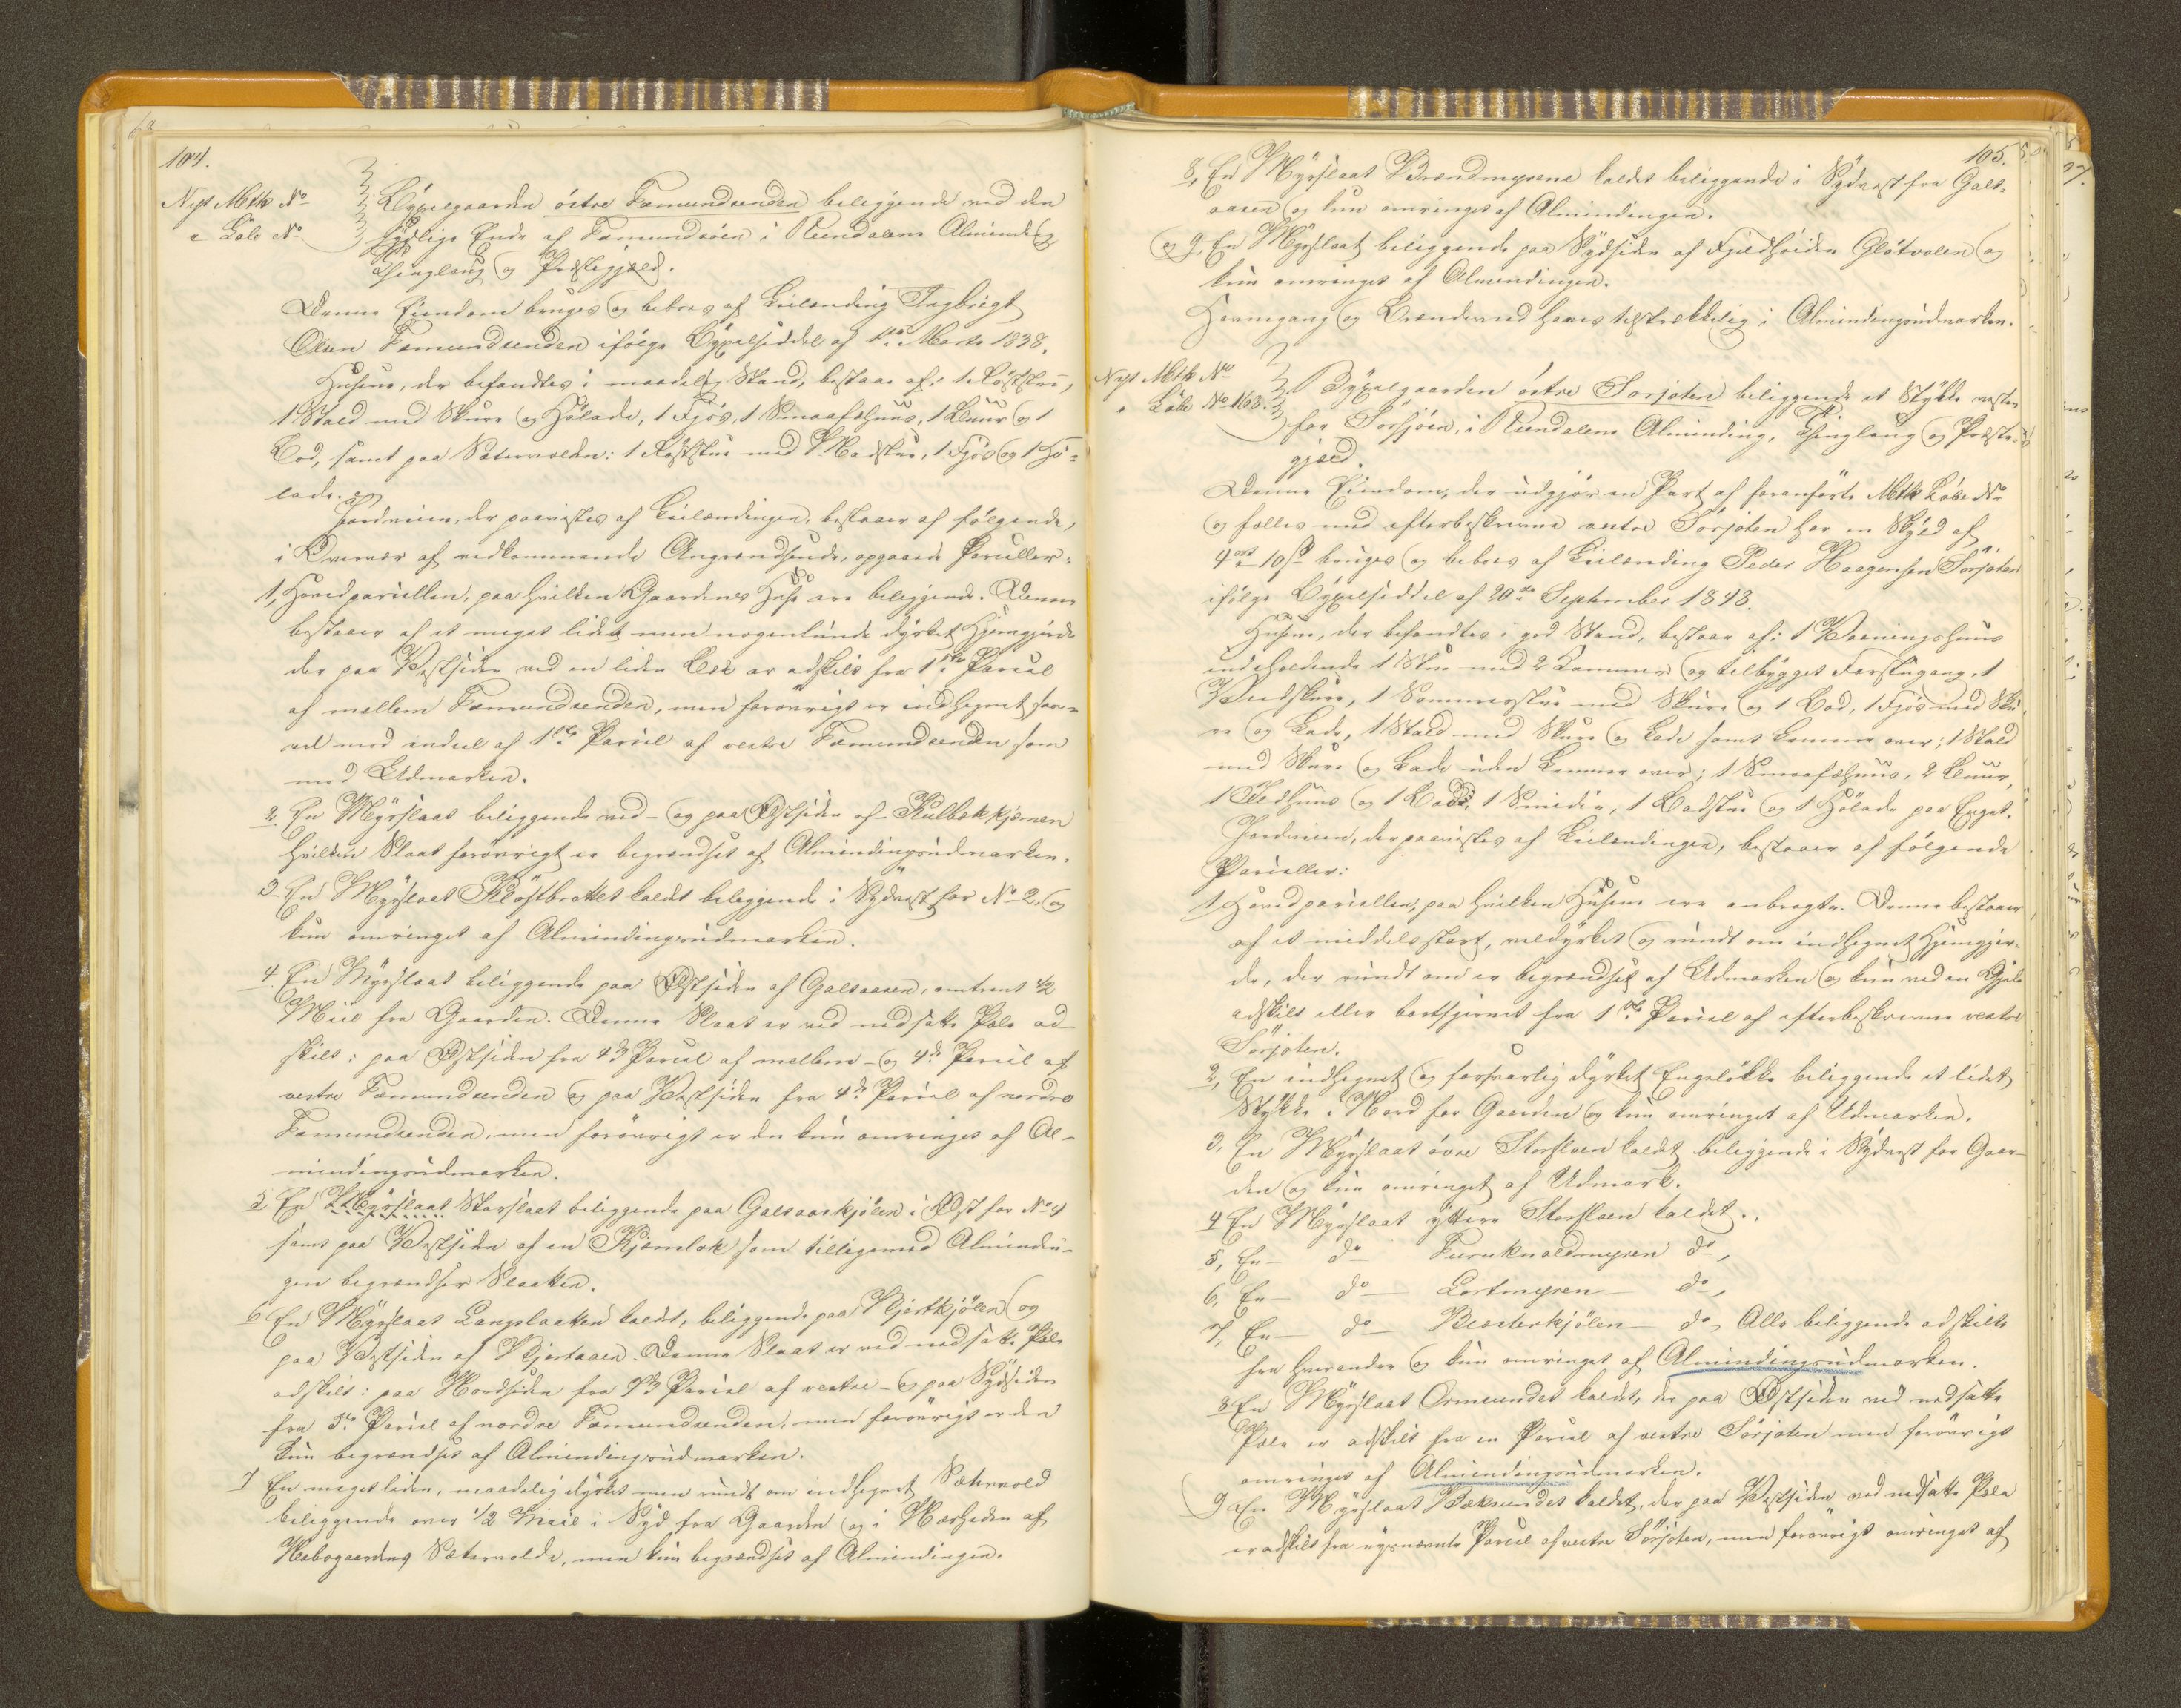 104.
Nyt Mtk No
" Löbe No
Bÿxelgaarden östre Fæmundsenden beliggende ved den
sÿdlige Ende af Fæmundsöen i Rendalens Alminding
Thinglaug og Præstegjæld.
Denne Eiendom bruges og beboes af Leilænding Ingbrigt
Olsen Fæmundsenden ifölge Bÿxelseddel af 1ste Marts 1838.
Husene, der befandtes i maadelig Stand, bestaar af: 1 Röststue,
1 Stald med Skure og Hölade, 1 Fjös, 1 Smaafæhuus, 1 Buur og 1
Bod, samt paa Sætervolden: 1 Röststue med Madskur, 1 Fjös og 1 Hö-
lade.
Jordveien, der paavistes af Leilændingen, bestaaer af fölgende,
i Overvær af vedkommende Angrændsende, opgaaede Parceller:
1, Hovedparcellen, paa hvilken Gaardens Huse ere beliggende. Denne
bestaaer af et meget lidet men nogenlunde dÿrket Hjemgjærde
der paa Vestsiden ved en liden Bæk er adskilt fra 1ste Parcel
af mellem Fæmundsenden, men forövrigt er indhegnet saa-
vel mod endeel af 1ste Parcel af vestre Fæmundsenden som
mod Udmarken.
2. En Mÿrslaat beliggende ved - og paa Östsiden af Kulbækkjernen
hvilken Slaat forövrigt er begrændset af Almindingsudmarken.
3. En Mÿrslaat Kløftbrottet kaldet beliggende i Sÿdvest for No 2, og
kun omringet af Almindingsudmarken.
4. En Mÿrslaat beliggende paa Östsiden af Galsaasen, omtrent 1/2
Miil fra Gaarden. Denne Slaat er ved nedsatte Pæle ad-
skilt: paa Östsiden fra 4de Parcel af mellem - og 4de Parcel af
vestre Fæmundsenden og paa Vestsiden fra 4de Parcel af nordre
Fæmundsenden, men forövrigt er den kun omringet af Al-
mindingsudmarken.
5 En Mÿrslaat Storslaat beliggende paa Galsaaskjölen i Öst for No 4
samt paa Vestsiden af en Kjærnlok som tilligemed Almindin-
gen begrændser Slaatten.
6 En Mÿrslaat Langslaatten kaldet, beliggende paa Kjertkjölen og
paa Vestsiden af Kjertaaen. Denne Slaat er ved nedsatte Pæle
adskilt: paa Nordsiden fra 7de Parcel af vestre - og paa Sÿdsiden
fra 5te Parcel af nordre Fæmundsenden, men forövrigt er den
kun begrændset af Almindingsudmarken.
7 En meget liden, maadelig dÿrket men rundt om indhegnet Sætervold
beliggende over 1/2 Miil i Sÿd fra Gaarden og i Nærheden af
Nabogaardens Sætervolde, men kun begrændset af Almindingen.
105.
8, En Mÿrslaat Brændmyrene kaldet beliggende i Sÿdvest fra Gals-
aasen og kun omringet af Almindingen.
og 9, En Mÿrslaat beliggende paa Sÿdsiden af Fjeldhöiden Glötvolen og
kun omringet af Almindingen.
Havnegang og Brændeved haves tilstrækkelig i Almindingsudmarken.
Nyt Mtk No
" Löbe No 163.
Bÿxelgaarden östre Sorjoten beliggende et Stÿkke vesten
for Sorsjöen, i Rendalens Alminding, Thinglaug og Præste-
gjæld.
Denne Eiendom, der udgjör en Part af foranförte Mtk Löbe No
og fælles med efterbeskrevne vestre Sörjoten har en Skÿld af
4 ort 10 s bruges og beboes af Leilænding Peder Haagensen Sörjoten
ifölge Bÿxelseddel af 20de September 1848.
Husene, der befandtes i god Stand, bestaar af: 1 Vaaningshuus
indeholdende 1 Stue med 2 Kammer og tilbÿgget Forstugang, 1
Vedskur, 1 Sommerstue med Skure og 1 Bod, 1 Fjös med Sku-
re og Lade, 1 Stald med Skure og Lade samt Kammer over; 1 Stald
med Skure og Lade uden Kammer over; 1 Smaafæhuus, 2 Buur,
1 Ildhuus og 1 Bod, 1 Smedie, 1 Badstue og 1 Hölade paa Enget.
Jordveien, der paavistes af Leilændingen, bestaaer af fölgende
Parceller:
1, Hovedparcellen, paa hvilken Husene ere anbragte. Denne bestaaer
af et middelsstort, veldÿrket og rundt om indhegnet Hjemgjær-
de, der rundt om er begrændset af Udmarken og kun ved en Gjel
adskilt eller bortfjernet fra 1ste Parcel af efterbeskrevne vestre
Sörjoten.
2, En indhegnet og forsvarlig dÿrket Engelökke beliggende et lidet
Stÿkke i Nord for Gaarden og kun omringet af Udmarken.
3, En Mÿrslaat övre Storfloen kaldet beliggende i Sÿdvest for Gaar-
den og kun omringet af Udmark.
4 En Mÿrslaat ÿttere Storfloen kaldet.,
5, En - do Furuknoldmyren do,
6, En - do - Lortmyren - do,
7, En - do - Blæsterkjölen - do, Alle beliggende adskilte
fra hverandre og kun omringet af Almindingsudmarken.
8 En Mÿrslaat Ormsundet kaldet, der paa Östsiden ved nedsatte
Pæle er adskilt fra en Parcel af vestre Sörjoten men forövrigt
omringet af Almindingsudmarken.
9 En Mÿrslaat Bæksundet kaldet, der paa Vestsiden ved nedsatte Pæle
er adskilt fra nÿsnævnte Parcel af vestre Sörjoten, men forövrigt omringet af